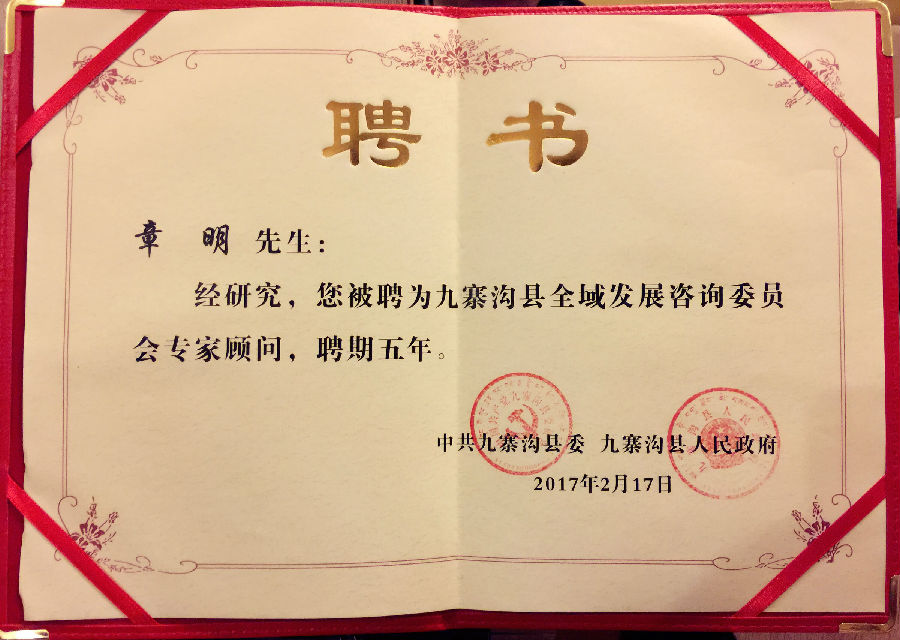 聘书
章 明 先生：
经研究，您被聘为九寨沟县全域发展咨询委员
会专家顾问，聘期五年。
中共九寨沟县委 九寨沟县人民政府
2017年2月17日